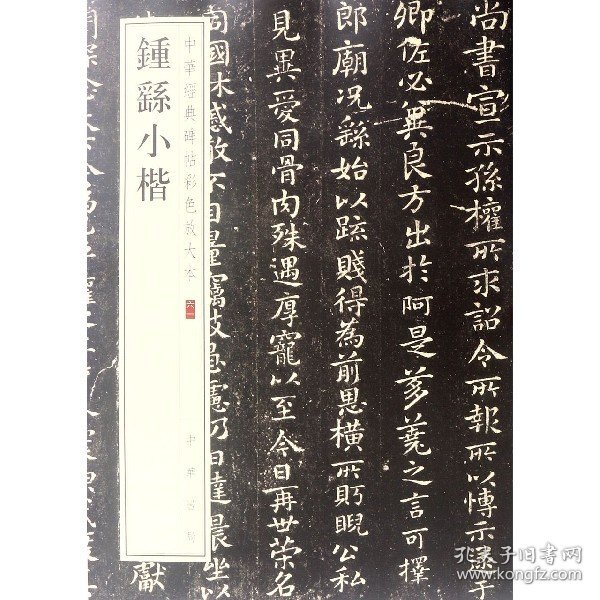 尚書宣示孫權所求詔令所報所以博示逮于
卿佐必冀良方出於阿是芻蕘之言可擇
郎廟況繇始以疏賤得為前恩橫所盼睨公私
見異愛同骨肉殊遇厚寵以至今日再世榮名
同國休慼敢不自量竊致愚慮仍日達晨坐以
獻
中華經典碑帖彩色放大本
中華書局
鍾繇小楷
孔夫子旧书网
www.kongfz.com